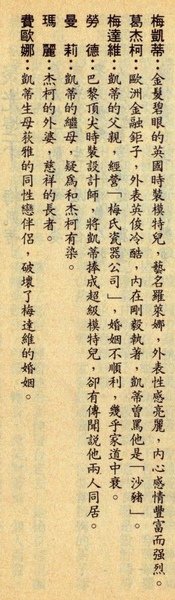 梅凱蒂：金髮碧眼的英國時裝模特兒，藝名羅萊娜，外表性感亮麗，內心感情豐富而强烈。
葛杰柯：歐洲金融鉅子，外表英俊冷酷，內在剛毅執著，凱蒂曾罵他是「沙豬」。
梅達維：凱蒂的父親，經營「梅氏瓷器公司」，婚姻不順利，幾乎家道中衰。
勞　德：巴黎頂尖時裝設計師，將凱蒂捧成超級模特兒，卻有傳聞說他兩人同居。
曼　莉：凱蒂的繼母，疑爲和杰柯有染。
瑪　麗：杰柯的外婆，慈祥的長者。
費歐娜：凱蒂生母荻雅的同性戀伴侶，破壞了梅達維的婚姻。